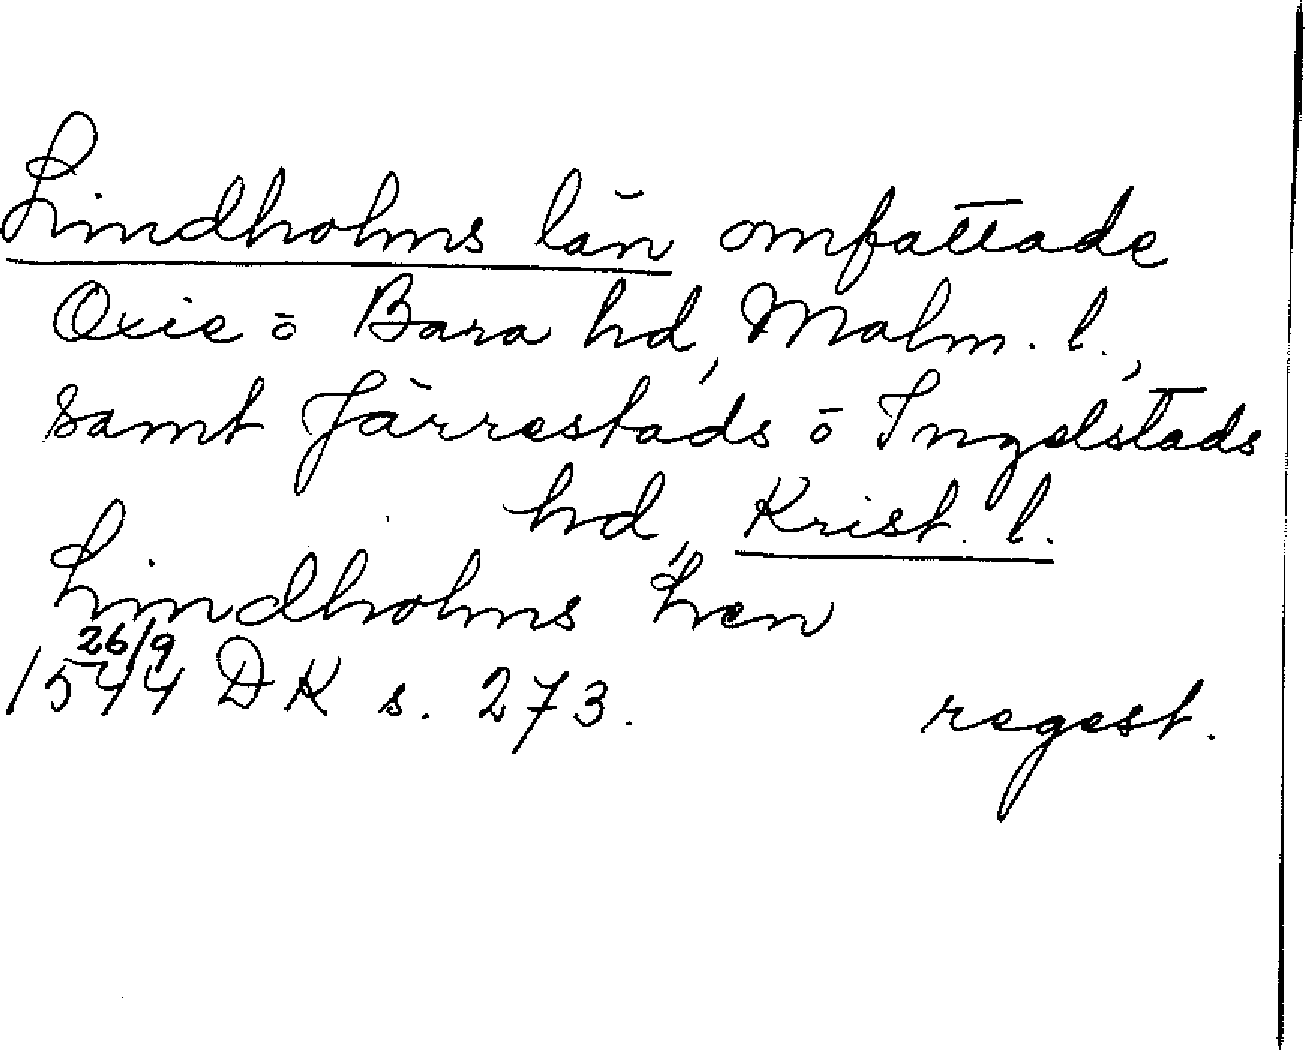 Lindholms län omfattade
Oxie ō Bara hd, Malm. l.,
samt Järrestads ō Ingelstads
hd, Krist. l.
Lindholms Len
26/9
1544 DK s. 273. regest.